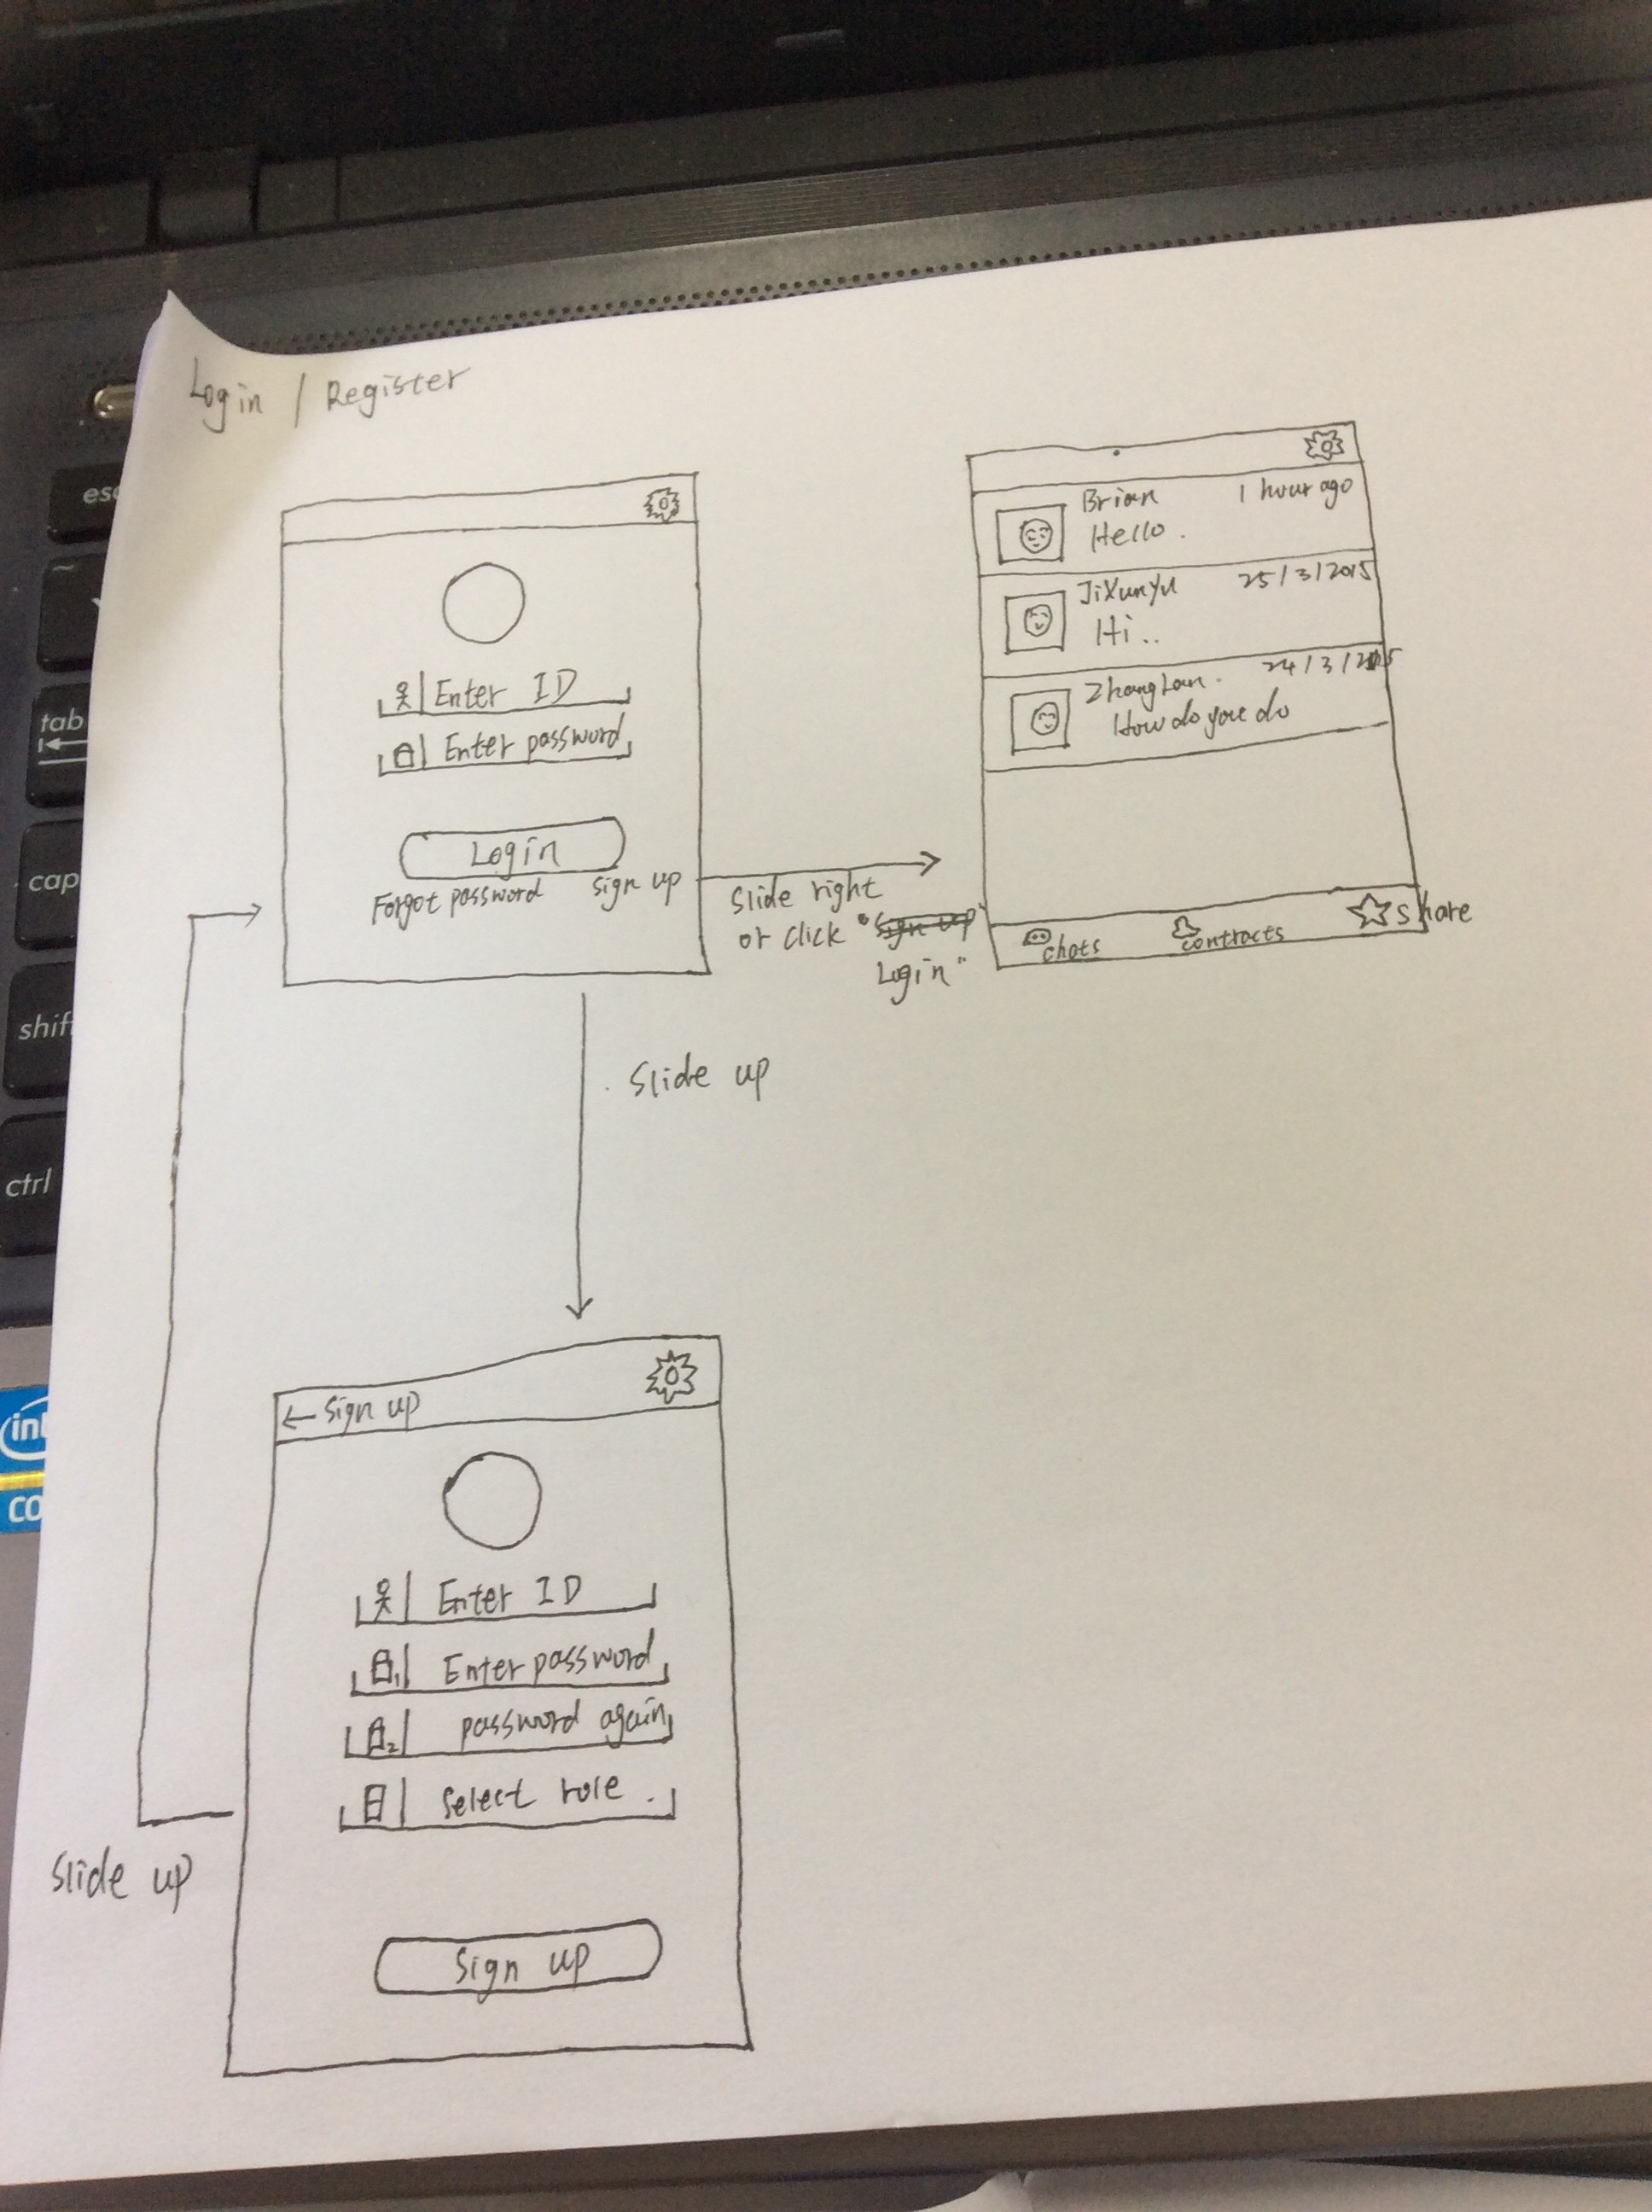 Login / Register
Enter ID
Enter password
Login
Forgot password sign up
Slide right
or click "Sign up"
Login"
Brian 1 hour ago
Hello.
JiXunYu 25/3/2015
Hi..
24/3/2015
ZhangLan.
How do you do
chats contracts share
Slide up
← Sign up
Enter ID
1 Enter password
2 password again
Select role.
Slide up
Sign up
esc
~
tab
cap
shif
ctrl
int
CO